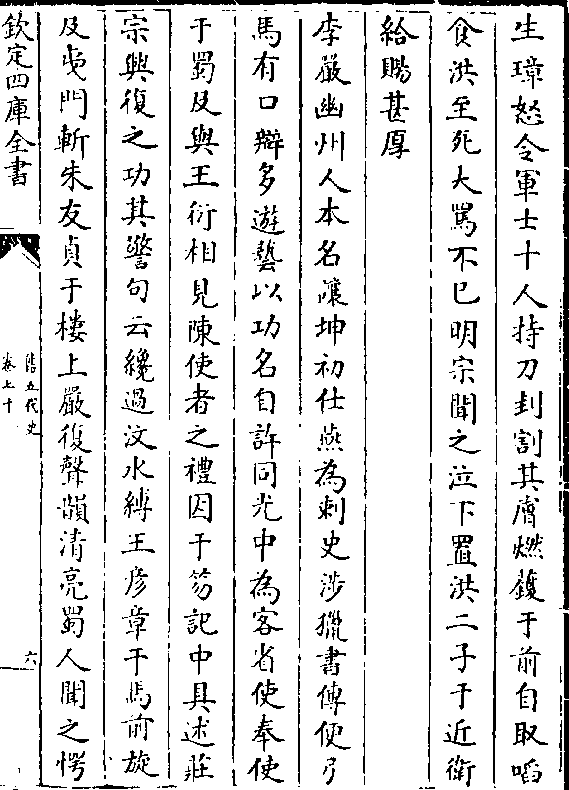 生璋怒令軍士十人持刀刲割其膚燃鑊于前自取啗
食洪至死大罵不已明宗聞之泣下置洪二子于近衛
給賜甚厚
李嚴幽州人本名讓坤初仕燕為刺史涉獵書傳便弓
馬有口辯多遊藝以功名自許同光中為客省使奉使
于蜀及與王衍相見陳使者之禮因于笏記中具述莊
宗興復之功其警句云纔過汶水縛王彥章于馬前旋
及夷門斬朱友貞于樓上嚴復聲韻清亮蜀人聞之愕
欽定四庫全書
舊五代史
卷七十
六